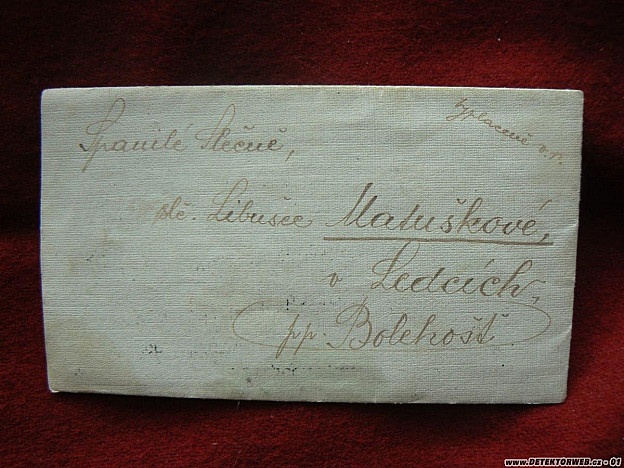 Spanilé Slečně,
vyplaceně o.r.
slč. Libušce Matuškové,
v Ledcích,
pp. Bolehošť
www.DETEKTORWEB.cz - 01